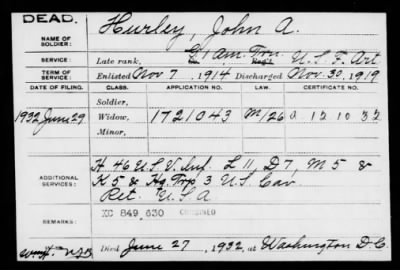 DEAD.
NAME OF SOLDIER: Hurley, John A.
SERVICE: Late rank, 1 Am. Trn. Reg't U S F. Art
TERM OF SERVICE: Enlisted Nov 7, 1914 Discharged Nov. 30, 1919
DATE OF FILING. CLASS. APPLICATION NO. LAW. CERTIFICATE NO.
Soldier,
1932 June 29 Widow, 1721043 M/26 a 12 10 32
Minor,
ADDITIONAL SERVICES: H 46 U S V. Inf. L 11, D 7, M 5 &
K 5 & Hq. Trp 3 U.S. Cav.
Ret. U.S.A
REMARKS: XC 849 630
Died June 27, 1932, at Washington D.C.